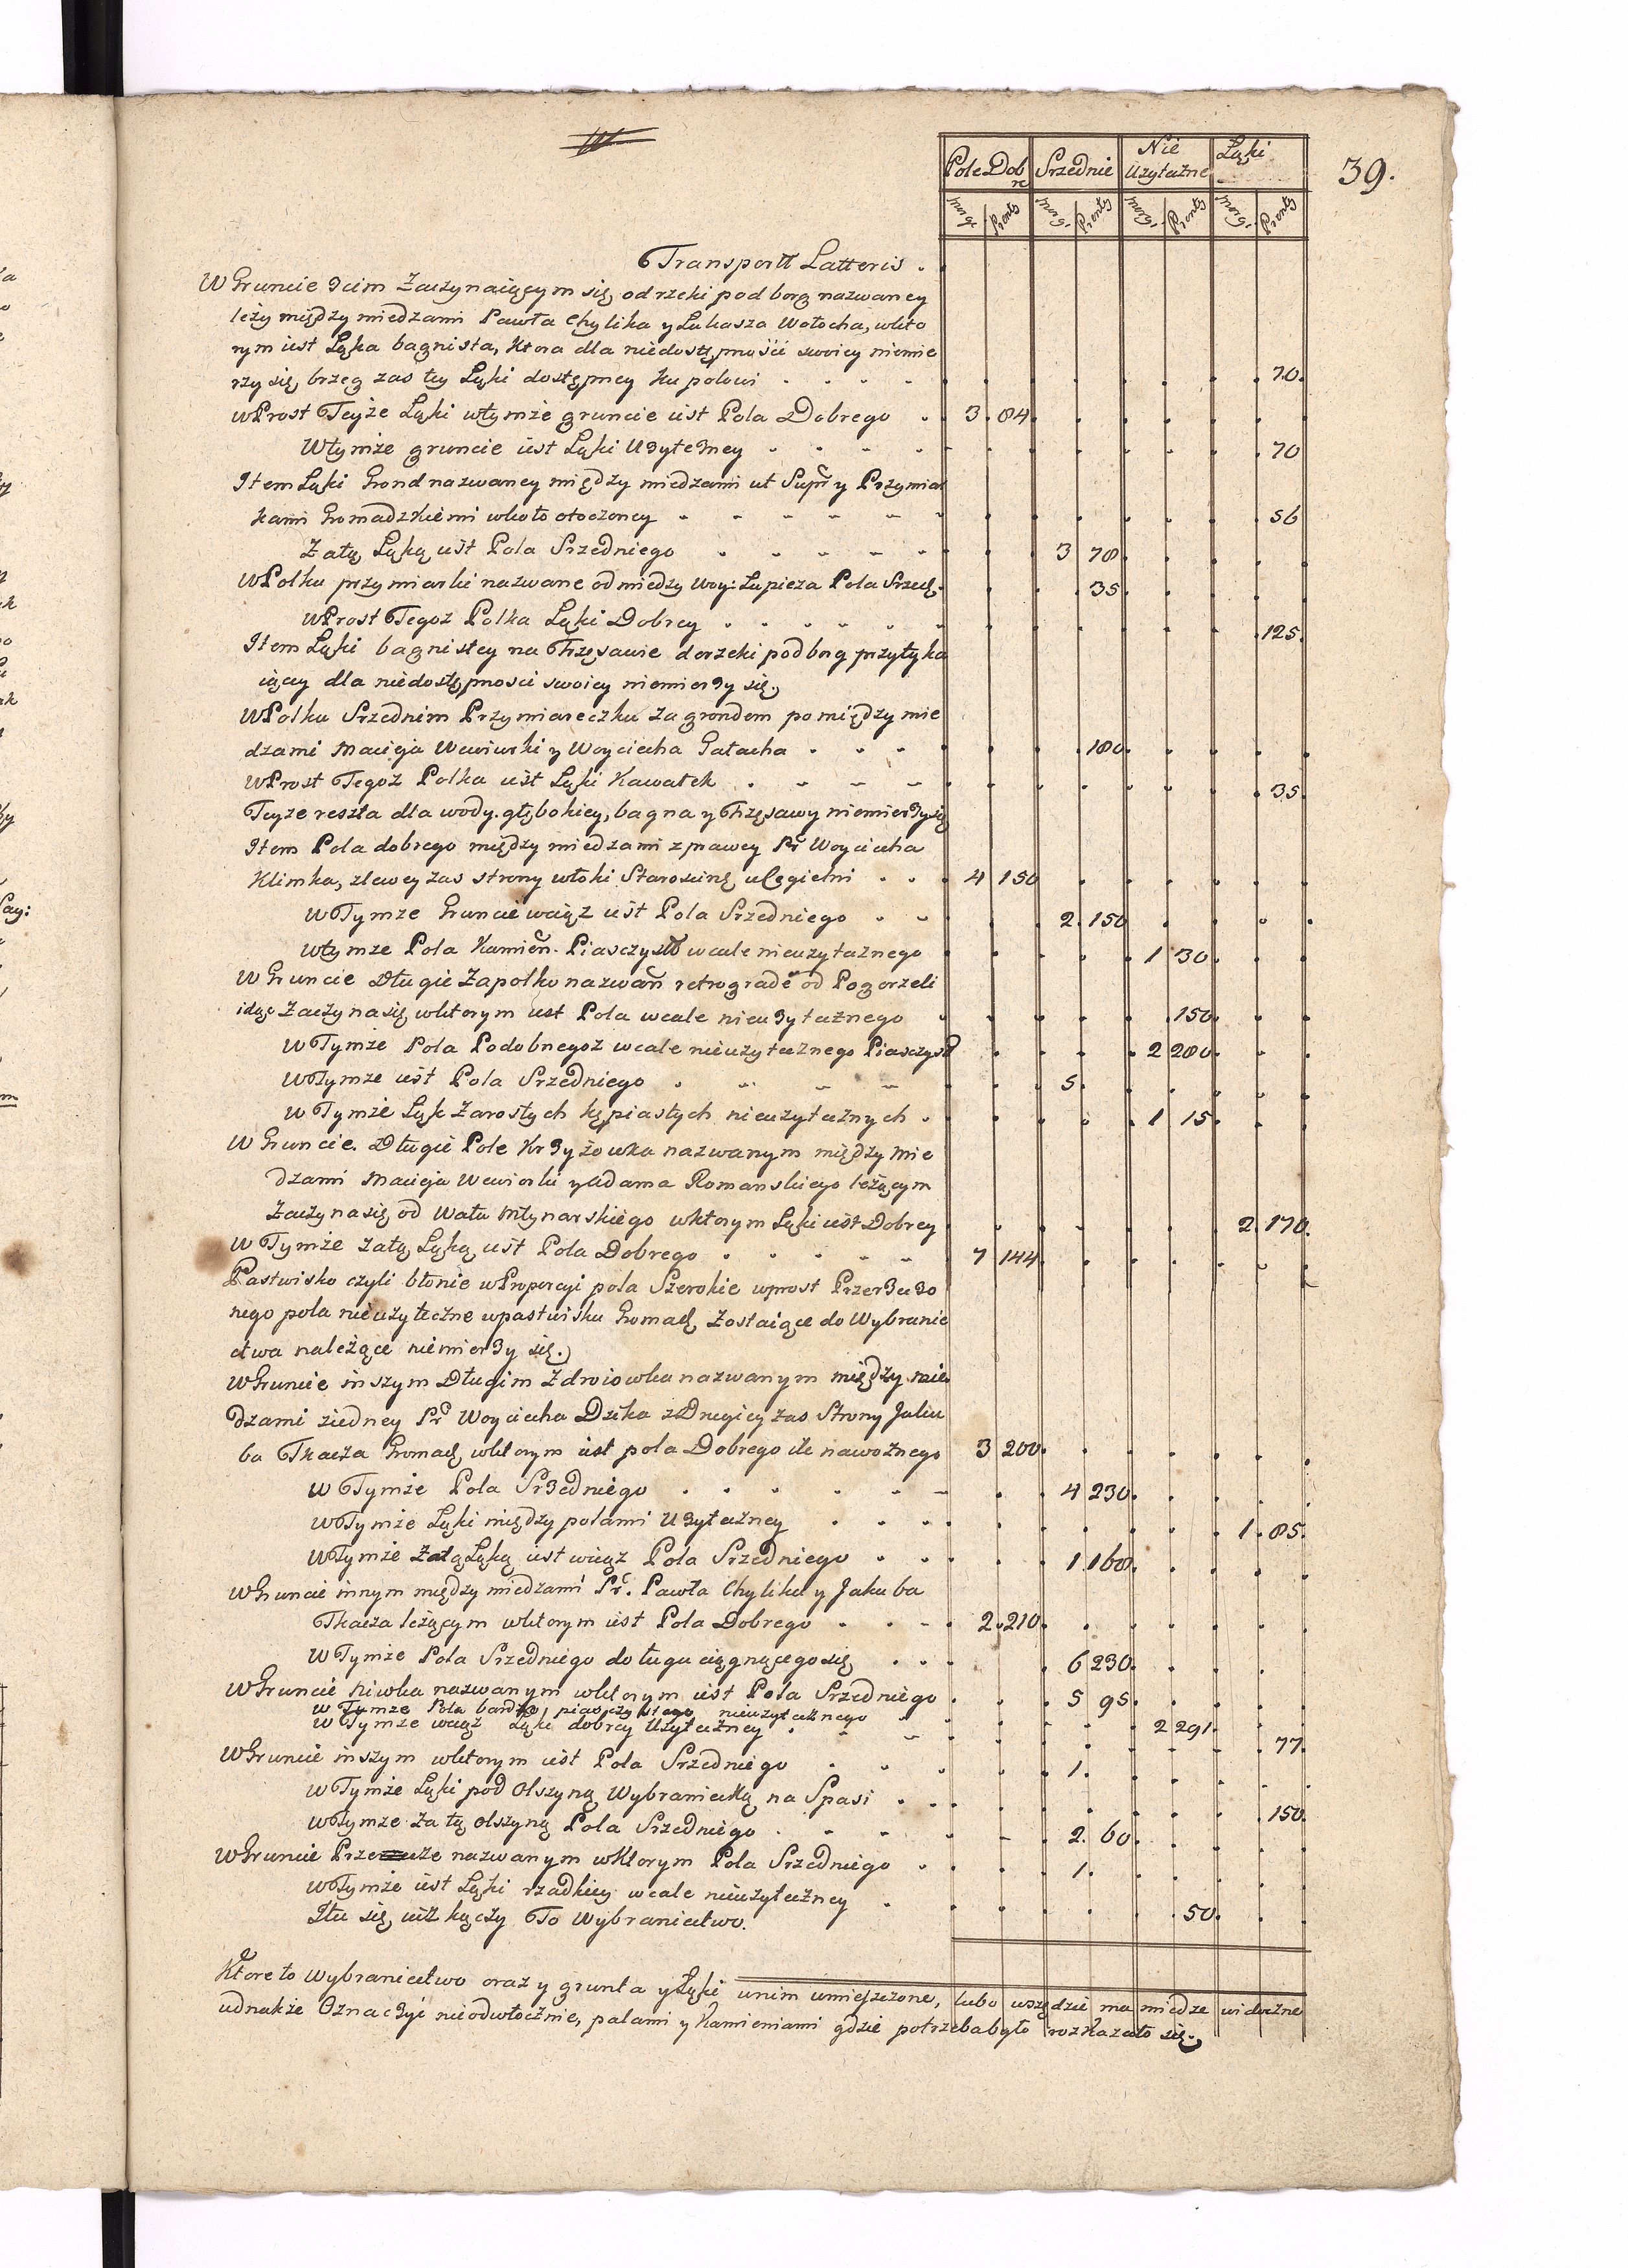 39.
Pole Dobre Srzednie Nie Użyteczne Łąki
Morg: Pręnty Morg: Pręnty Morg: Pręnty Morg: Pręnty
Transportt Latteris .
W Gruncie 3cim Zaczynaiącym się od rzeki pod borg nazwaney
leży między miedzami Pawła Chylika y Lukasza Wołocha, wkto
rym iest Łąka bagnista, Ktora dla niedostępności swoiey niemie
rzy się, brzeg zas tey Łąki dostępney ku polowi 70.
wProst Teyże Łąki wtymże gruncie iest Pola Dobrego 3. 84.
Wtymże gruncie iest Łąki Uzyteczney 70
Item Łąki Grond nazwaney między miedzami ut Supr y Przymiar
kami Gromadzkiemi wkoło otoczoney 56
Zatą Łąką iest Pola Srzedniego 3 78.
wPolku przymiarki nazwane od miedzy Woy: Lupieza Pola Srzed. 35
wProst Tegoż Polka Łąki Dobrey 125.
Item Łąki bagnistey na Trzęsawie do rzeki pod borg przytyka
iącey dla niedostępnosci swoiey niemierzy się.
wPolku Srzednim Przymiareczku Zagrondem pomiędzy mie
dzami Macieja Wewiurki y Woyciecha Gałacha 180.
wProst Tegoż Polka iest Łąki Kawałek 35.
Teyże reszta dla wody głębokiey, bagna y Trzęsawy niemierzy się
Item Pola dobrego między miedzami z prawey Pr Woyciecha
Klimka, zlewey zas strony włoki Starosciną u Cegielni 4 150
w Tymże Gruncie wciąż iest Pola Srzedniego 2. 150
wtymże Pola Kamień. Piasczyst wcale nieuzytecznego 1 30.
W Gruncie Długie Zapolku nazwań retrograde od Pogorzeli
idąc Zaczyna się wktorym iest Pola wcale nieuzytecznego 150.
w Tymże Pola Podobnegoż wcale nieuzytecznego Piasczyst 2 280.
wTymże iest Pola Srzedniego 5.
w Tymże Łąk Zarosłych kępiastych nieuzytecznych 1 15.
W Gruncie Długie Pole Krzyżowka nazwanym między mie
dzami Macieja Wewiorki y Adama Romanskiego leżącym
Zaczyna się od Wału Młynarskiego wktorym Łąki iest Dobrey 2. 170.
w Tymże zatą Łąką iest Pola Dobrego 7 144.
Pastwisko czyli błonie wProporcyi pola Szerokie wprost Przerzuzo
nego pola nieużyteczne wpastwisku Gromad. Zostaiące do Wybranie
ctwa należące niemierzy się.
wGruncie inszym Długim Zdroiowka nazwanym między mie
dzami ziedney Pr Woyciecha Dzika z Drugiey zas Strony Jaku
ba Tkacza Gromad. wktorym iest pola Dobrego ile nawoznego 3 200.
w Tymże Pola Srzedniego 4 230.
wTymże Łąki między polami Uzyteczney 1. 85.
wTymże Zatą Łąką iest wciąż Pola Srzedniego 1. 160.
wGruncie innym między miedzami Pr. Pawła Chylika y Jakuba
Tkacza leżącym wktorym iest Pola Dobrego 2. 210.
w Tymże Pola Srzedniego do ługu ciągnącego się 6 230.
wGruncie Niwka nazwanym wktorym iest Pola Srzedniego 5 95.
w Tymże Pola bardzo piasczystego nieuzytecznego 2 291.
w Tymże wciąż Łąki dobrey Uzyteczney 77.
wGruncie inszym wktorym iest Pola Srzedniego 1.
w Tymże Łąki pod Olszyną Wybraniecką na Spasi 150.
wTymże Za tą olszyną Pola Srzedniego 2. 60.
wGruncie nazwanym wktorym Pola Srzedniego 1.
wTymże iest Łąki rzadkiey wcale nieuzyteczney 50.
Itu się iuż kączy To Wybraniectwo.
Ktore to Wybraniectwo oraz y grunta y Łąki wnim umiejszczone, lubo wszędzie ma miedze widoczne
iednakże Oznaczyć nieodwłocznie, palami y Kamieniami gdzie potrzeba było rozkazało się.